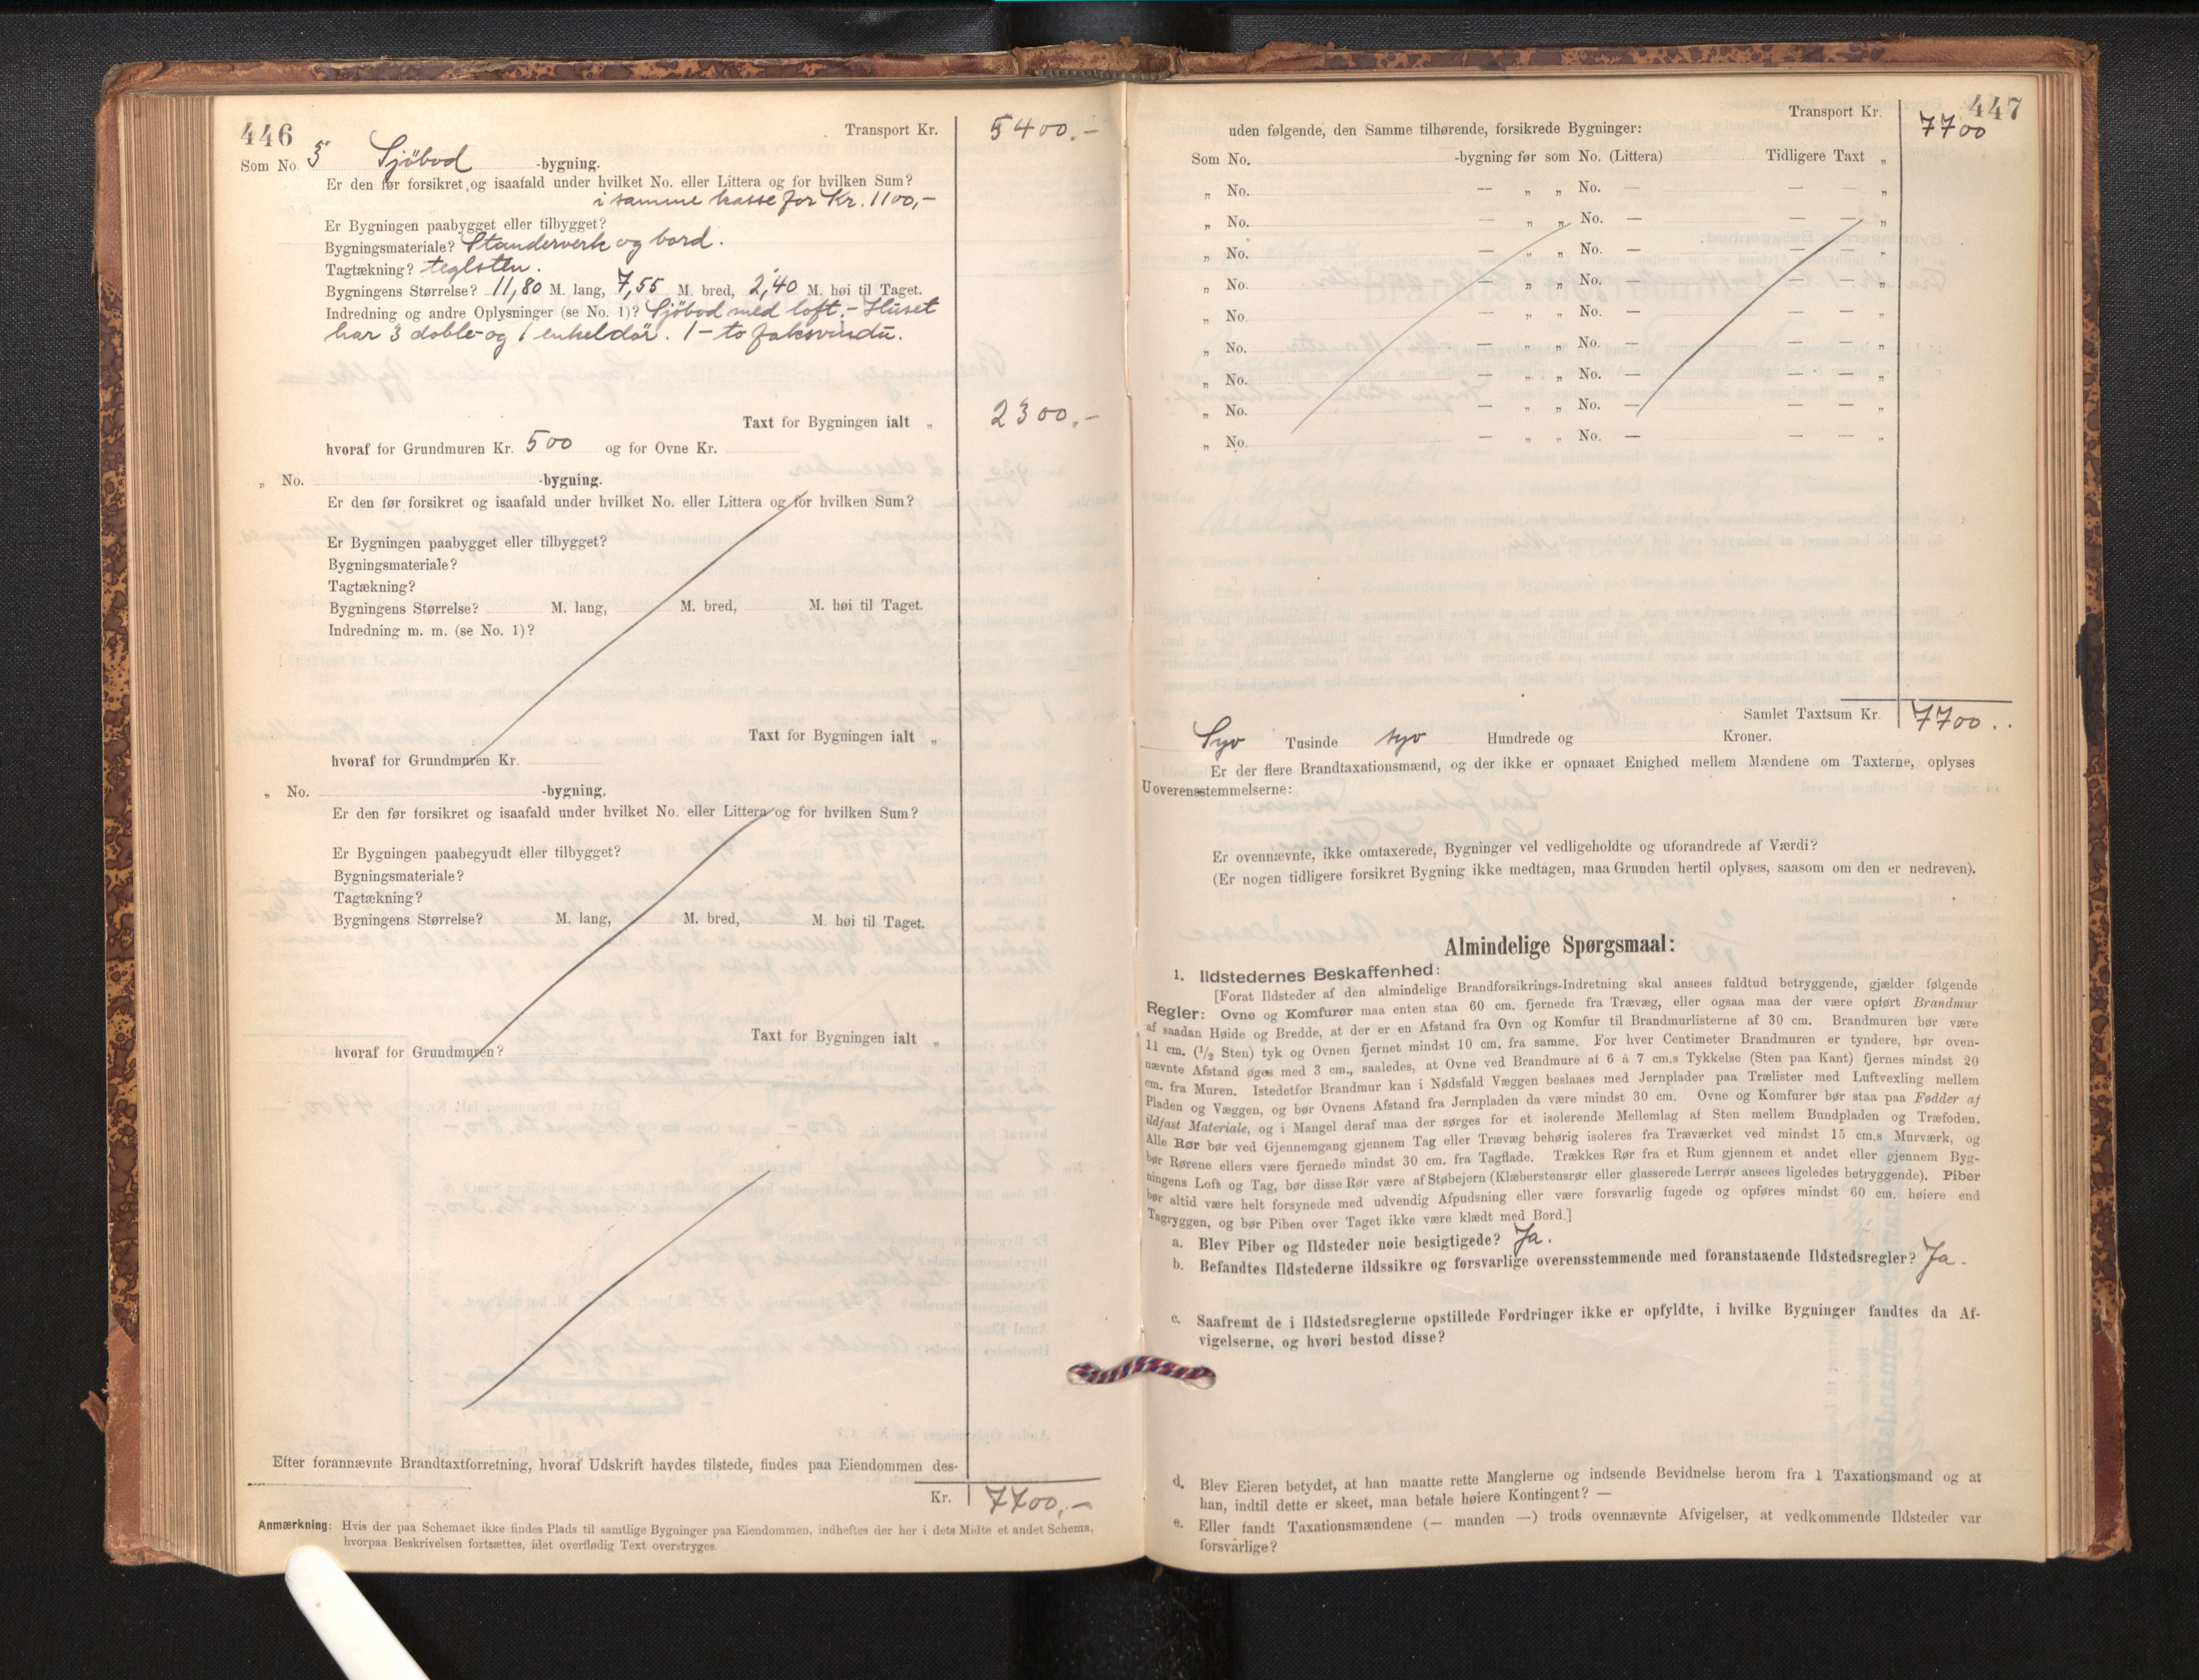 446
Transport Kr. 5400.-
Som No. 3 Sjöbod -bygning.
Er den før forsikret og isaafald under hvilket No. eller Littera og for hvilken Sum?
i samme kasse for Kr. 1100,-
Er Bygningen paabygget eller tilbygget?
Bygningsmateriale? Standerverk og bord.
Tagtækning? teglsten.
Bygningens Størrelse? 11,80 M. lang, 7,55 M. bred, 2,40 M. høi til Taget.
Indredning og andre Oplysninger (se No. 1)? Sjöbod med loft. - Huset
har 3 doble- og 1 enkeldör. 1 - to faksvindu.
Taxt for Bygningen ialt „ 2300,-
hvoraf for Grundmuren Kr. 500 og for Ovne Kr.
„ No. -bygning.
Er den før forsikret og isaafald under hvilket No. eller Littera og for hvilken Sum?
Er Bygningen paabygget eller tilbygget?
Bygningsmateriale?
Tagtækning?
Bygningens Størrelse? M. lang, M. bred, M. høi til Taget.
Indredning m. m. (se No. 1)?
Taxt for Bygningen ialt „
hvoraf for Grundmuren Kr.
„ No. -bygning,
Er den før forsikret og isaafald under hvilket No. eller Littera og for hvilken Sum?
Er Bygningen paabegyudt eller tilbygget?
Bygningsmateriale?
Tagtækning?
Bygningens Størrelse? M. lang, M. bred, M. høi til Taget.
Taxt for Bygningen ialt „
hvoraf for Grundmuren?
Efter forannævnte Brandtaxtforretning, hvoraf Udskrift havdes tilstede, findes paa Eiendommen des-
Kr. 7700,-
Anmærkning: Hvis der paa Schemaet ikke findes Plads til samtlige Bygninger paa Eiendommen, indheftes der her i dets Midte et andet Schema,
hvorpaa Beskrivelsen fortsættes, idet overflødig Text overstryges.
447
Transport Kr. 7700
uden følgende, den Samme tilhørende, forsikrede Bygninger:
Som No. -bygning før som No. (Littera) Tidligere Taxt „
„ No. — „ „ No. — — — „
„ No. — „ „ No. — — — „
„ No. — „ „ No. — — — „
„ No. — „ „ No. — — — „
„ No. — „ „ No. — — — „
„ No. — „ „ No. — — — „
„ No. — „ „ No. — — — „
„ No. — „ „ No. — — — „
„ No. — „ „ No. — — — „
Samlet Taxtsum Kr. 7700..
Syv Tusinde syv Hundrede og Kroner.
Er der flere Brandtaxationsmænd, og der ikke er opnaaet Enighed mellem Mændene om Taxterne, oplyses
Uoverensstemmelserne:
Er ovennævnte, ikke omtaxerede, Bygninger vel vedligeholdte og uforandrede af Værdi?
(Er nogen tidligere forsikret Bygning ikke medtagen, maa Grunden hertil oplyses, saasom om den er nedreven).
Almindelige Spørgsmaal:
1. Ildstedernes Beskaffenhed:
[Forat Ildsteder af den almindelige Brandforsikrings-Indretning skal ansees fuldtud betryggende, gjælder følgende
Regler: Ovne og Komfurer maa enten staa 60 cm. fjernede fra Trævæg, eller ogsaa maa der være opført Brandmur
af saadan Høide og Bredde, at der er en Afstand fra Ovn og Komfur til Brandmurlisterne af 30 cm. Brandmuren bør være
11 cm. (1/2 Sten) tyk og Ovnen fjernet mindst 10 cm. fra samme. For hver Centimeter Brandmuren er tyndere, bør oven-
nævnte Afstand øges med 3 cm., saaledes, at Ovne ved Brandmure af 6 à 7 cm.s Tykkelse (Sten paa Kant) fjernes mindst 20
cm. fra Muren. Istedetfor Brandmur kan i Nødsfald Væggen beslaaes med Jernplader paa Trælister med Luftvexling mellem
Pladen og Væggen, og bør Ovnens Afstand fra Jernpladen da være mindst 30 cm. Ovne og Komfurer bør staa paa Fødder af
ildfast Materiale, og i Mangel deraf maa der sørges for et isolerende Mellemlag af Sten mellem Bundpladen og Træfoden.
Alle Rør bør ved Gjennemgang gjennem Tag eller Trævæg behørig isoleres fra Træværket ved mindst 15 cm.s Murværk, og
bør Rørene ellers være fjernede mindst 30 cm. fra Tagflade. Trækkes Rør fra et Rum gjennem et andet eller gjennem Byg-
ningens Loft og Tag, bør disse Rør være af Støbejern (Klæberstensrør eller glasserede Lerrør ansees ligeledes betryggende). Piber
bør altid være helt forsynede med udvendig Afpudsning eller være forsvarlig fugede og opføres mindst 60 cm. høiere end
Tagryggen, og bør Piben over Taget ikke være klædt med Bord.]
a. Blev Piber og Ildsteder nøie besigtigede? Ja.
b. Befandtes Ildstederne ildssikre og forsvarlige overensstemmende med foranstaaende Ildstedsregler? Ja.
c. Saafremt de i Ildstedsreglerne opstillede Fordringer ikke er opfyldte, i hvilke Bygninger fandtes da Af-
vigelserne, og hvori bestod disse?
d. Blev Eieren betydet, at han maatte rette Manglerne og indsende Bevidnelse herom fra 1 Taxationsmand og at
han, indtil dette er skeet, maa betale høiere Kontingent? —
e. Eller fandt Taxationsmændene (— manden —) trods ovennævnte Afvigelser, at vedkommende Ildsteder var
forsvarlige?